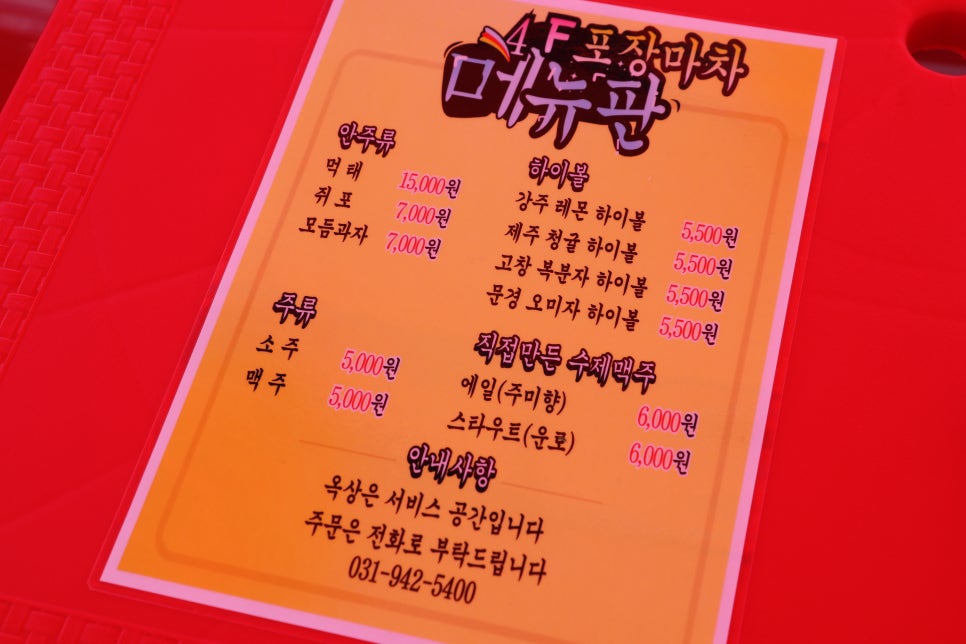 4F포장마차
메뉴판
안주류
먹태 15,000원
쥐포 7,000원
모듬과자 7,000원
주류
소주 5,000원
맥주 5,000원
하이볼
강주 레몬 하이볼 5,500원
제주 청귤 하이볼 5,500원
고창 복분자 하이볼 5,500원
문경 오미자 하이볼 5,500원
직접만든 수제맥주
에일(주미향) 6,000원
스타우트(운로) 6,000원
안내사항
옥상은 서비스 공간입니다
주문은 전화로 부탁드립니다
031-942-5400